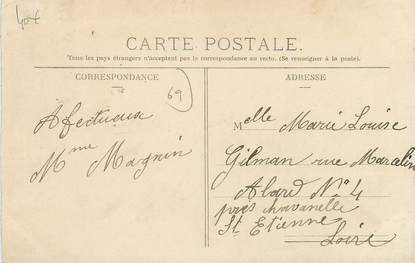 40f
CARTE POSTALE.
Tous les pays étrangers n'acceptent pas la correspondance au recto. (Se renseigner à la poste).
CORRESPONDANCE
ADRESSE
69
Afectueux
Mme Magnin
Melle Marie Louise
Gilman rue Marcelin
Alard N° 4
près chavanelle
St Etienne
Loire